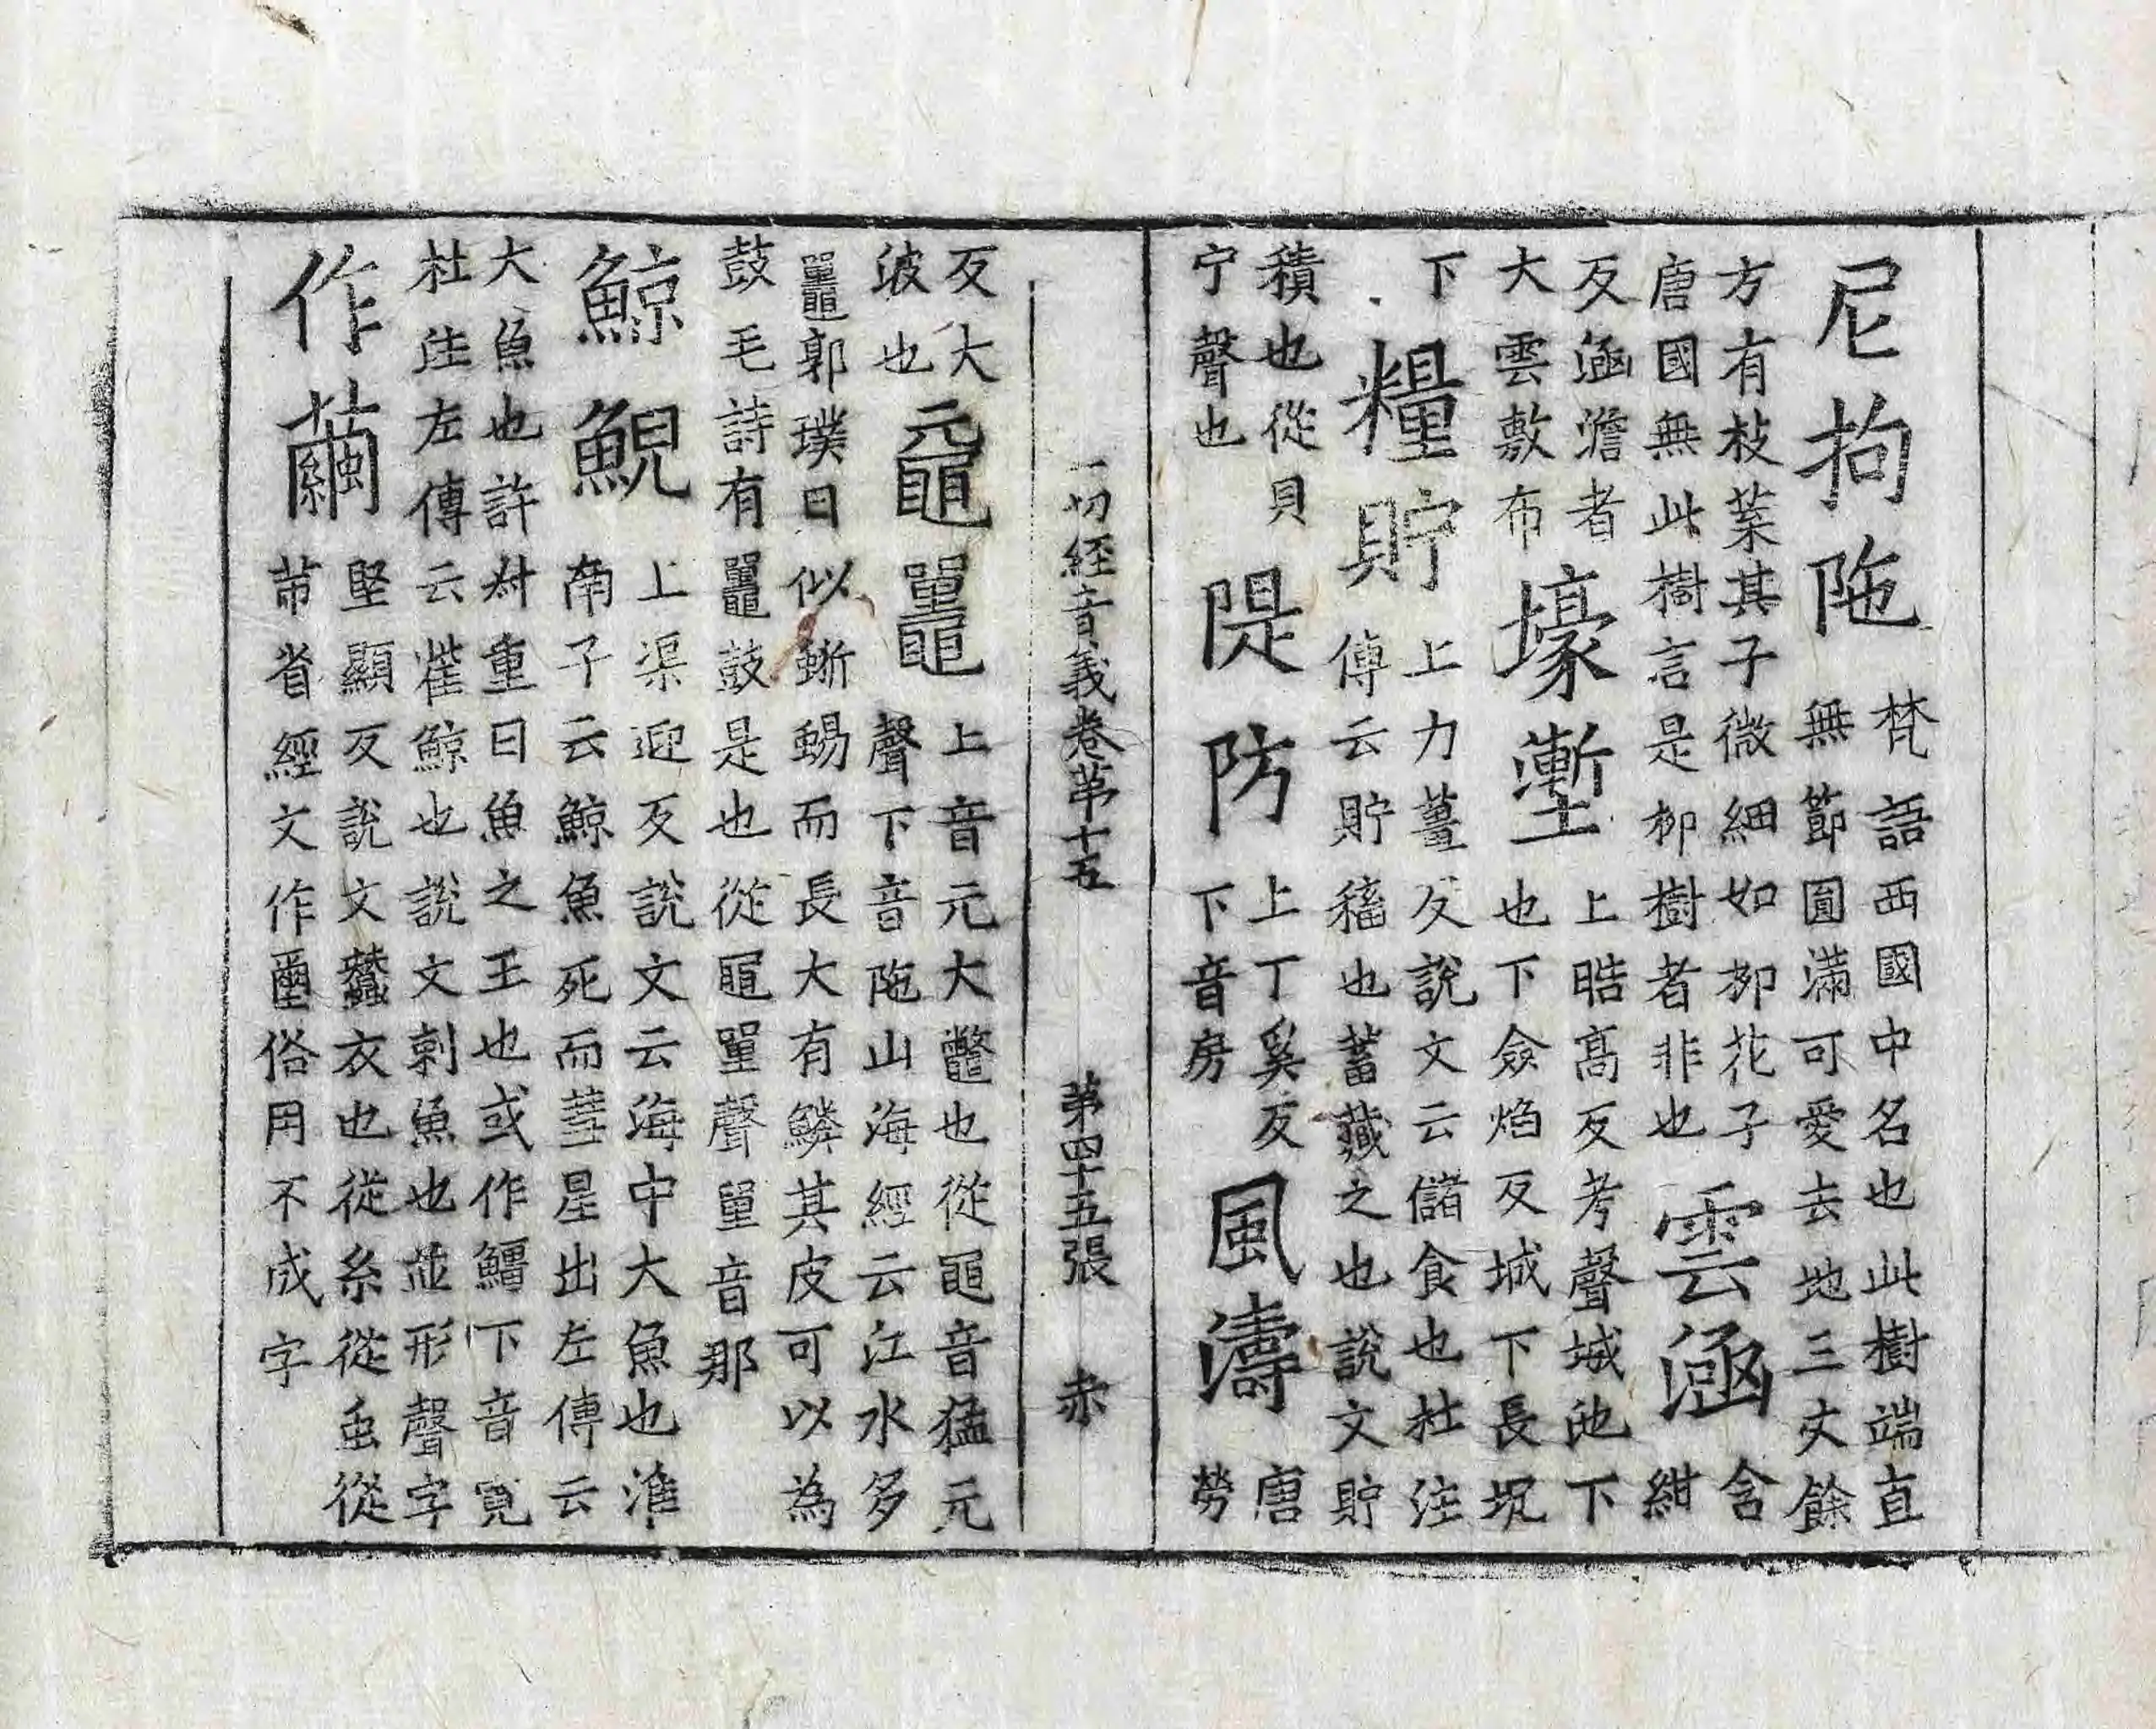 尼拘陁 梵語西國中名也此樹端直無節圓滿可愛去地三丈餘
方有枝葉其子微細如栁花子唐國無此樹言是栁樹者非也 雲涵 含紺
反涵澹者大雲敷布也 壕塹 上晧髙反考聲城池下也下僉焰反城下長坑
下 糧貯 上力薑反說文云儲食也杜注傳云貯稸也蓄藏之也說文貯
積也從貝宁聲也 隄防 上丁奚反下音房 風濤 唐勞
一切經音義卷苐十五 苐四十五張 赤
反大波也 黿鼉 上音元大鼈也從黽音猛元聲下音陁山海經云江水多
鼉郭璞曰似蜥蜴而長大有鱗其皮可以為鼓毛詩有鼉鼓是也從黽單聲單音那
鯨鯢 上渠迎反說文云海中大魚也淮南子云鯨魚死而彗星出左傳云
大魚也許叔重曰魚之王也或作鱷下音寛杜注左傳云雈鯨也說文剌魚也並形聲字
作繭 堅顯反說文蠶衣也從糸從虫從芇省經文作壐俗用不成字